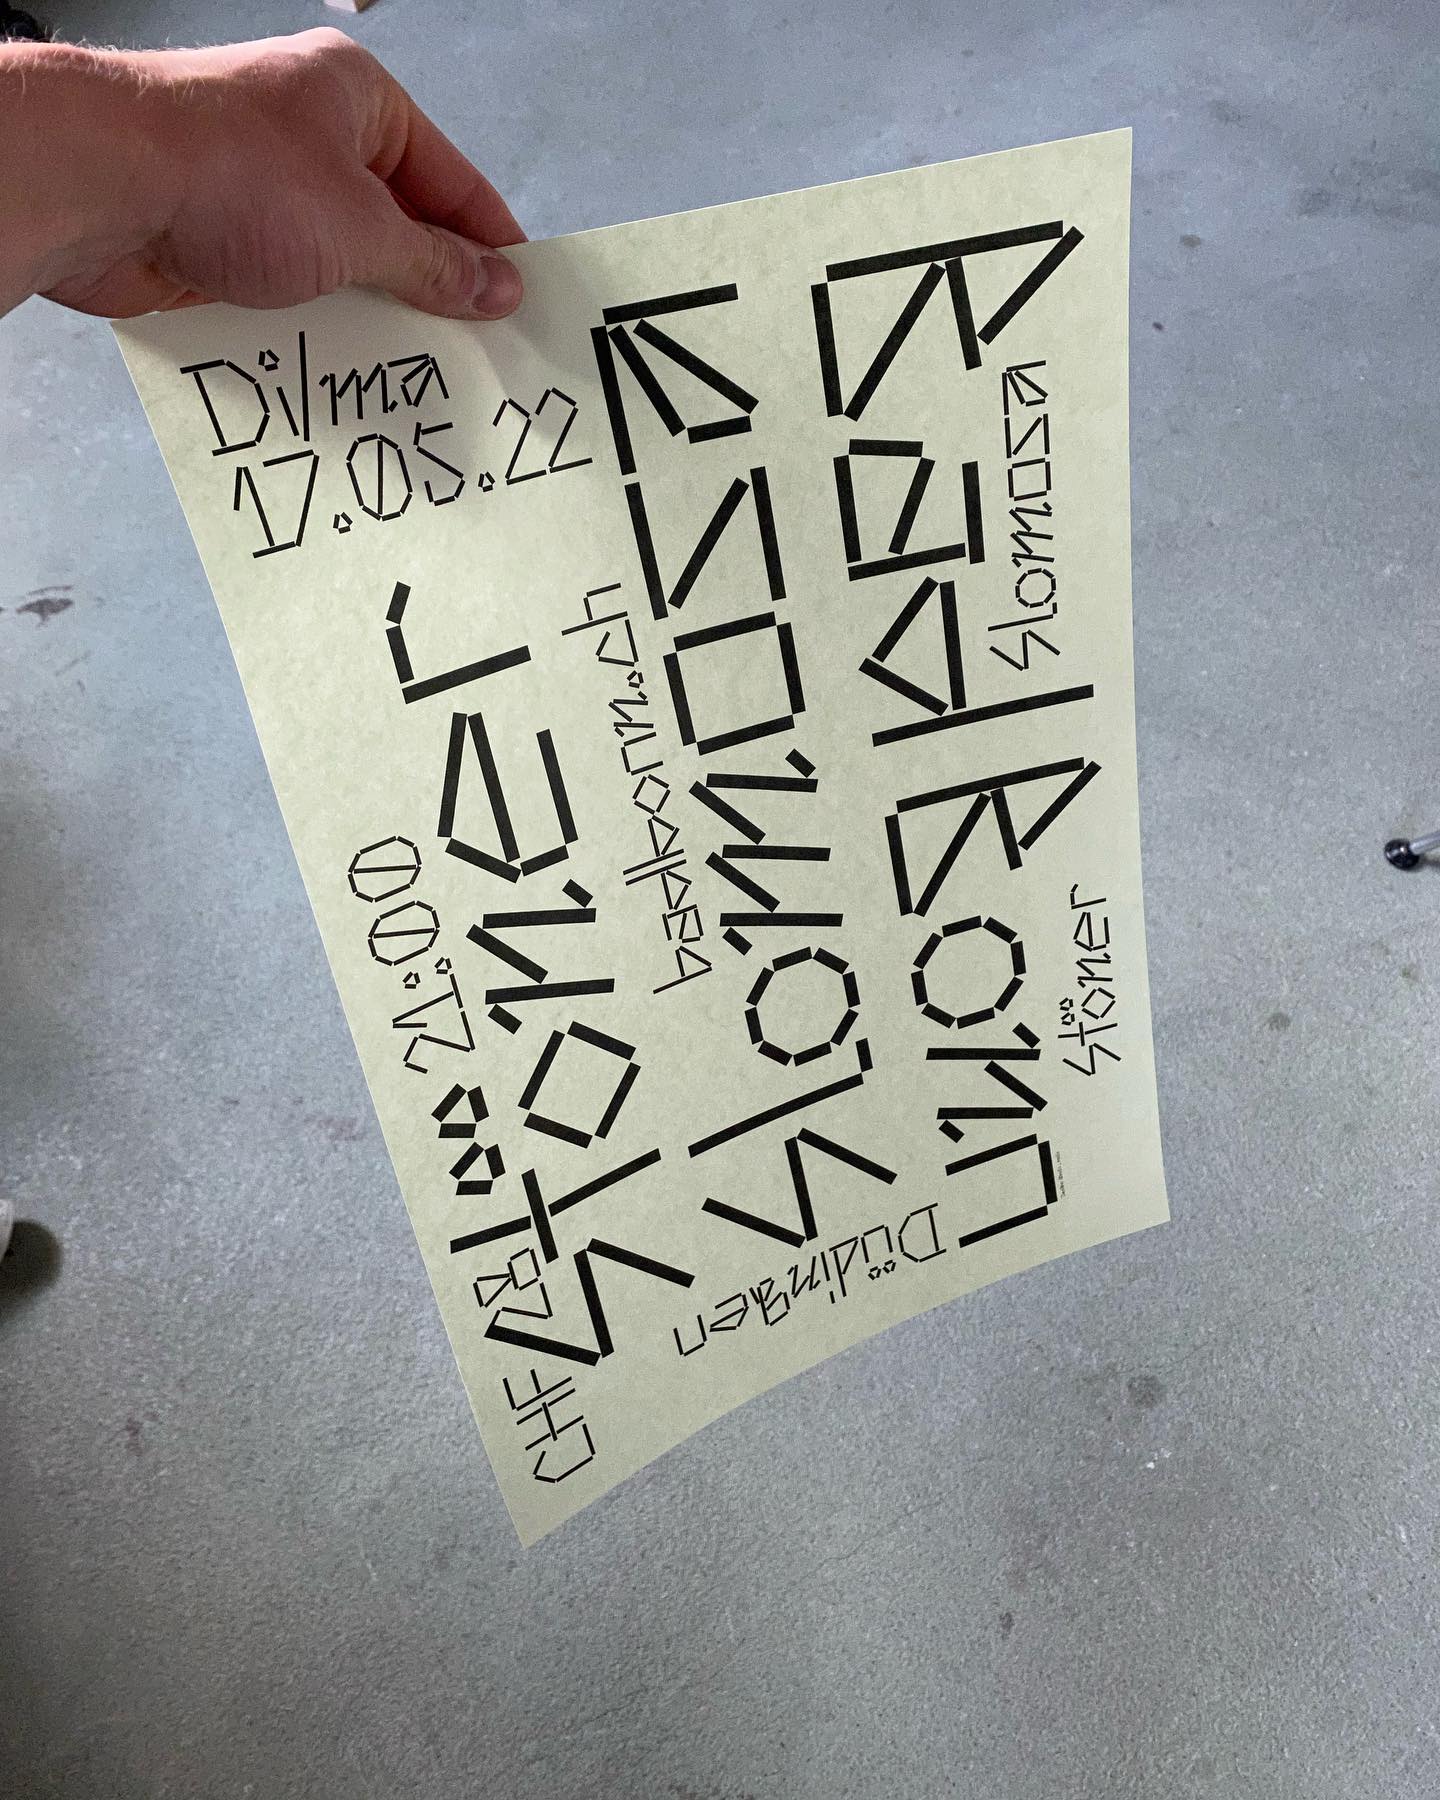 Di/ma
17.05.22
Slomosa
Bad Bonn
Slomosa
badbonn.ch
Stöner
21:00
Stöner
Düdingen
CHF 28